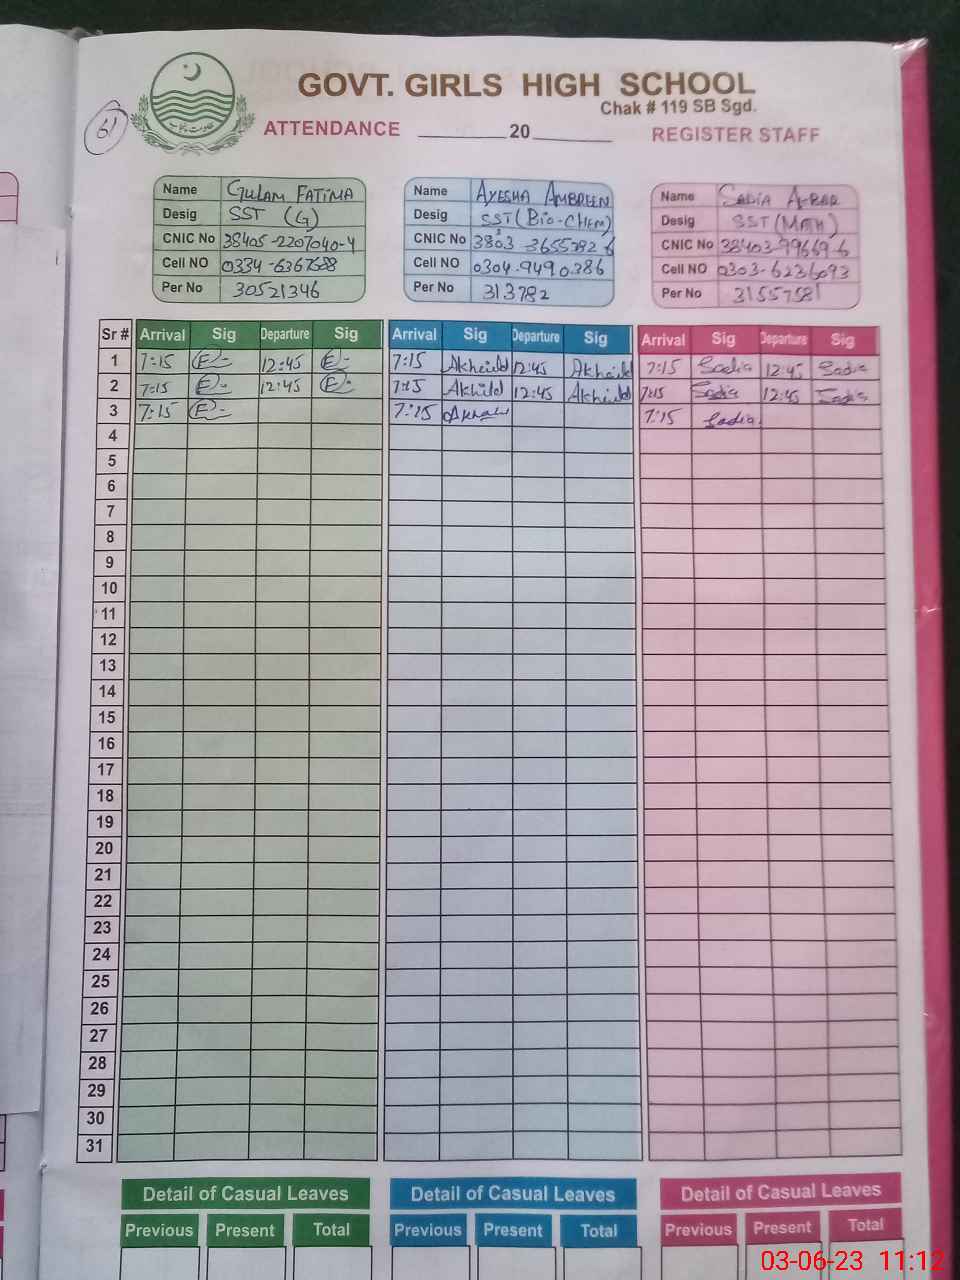 GOVT. GIRLS HIGH SCHOOL
Chak # 119 SB Sgd.
61
ATTENDANCE ________ 20 ________ REGISTER STAFF
Name GULAM FATIMA
Desig SST (G)
CNIC No 38405-2207040-4
Cell NO 0334-6367588
Per No 30521346
Name AYESHA AMBREEN
Desig SST (BIO-CHEM)
CNIC No
Cell NO 0304-9490386
Per No 313782
Name SADIA
Desig SST (MATH)
CNIC No
Cell NO 0303-6236093
Per No 31557581
Sr # Arrival Sig Departure Sig Arrival Sig Departure Sig Arrival Sig Departure Sig
1 7:15 12:45 7:15 12:45 7:15 Sadia 12:45 Sadia
2 7:15 12:45 7:15 12:45 7:15 Sadia 12:45 Sadia
3 7:15 7:15 7:15 Sadia
4
5
6
7
8
9
10
11
12
13
14
15
16
17
18
19
20
21
22
23
24
25
26
27
28
29
30
31
Detail of Casual Leaves Detail of Casual Leaves Detail of Casual Leaves
Previous Present Total Previous Present Total Previous Present Total
03-06-23 11:12